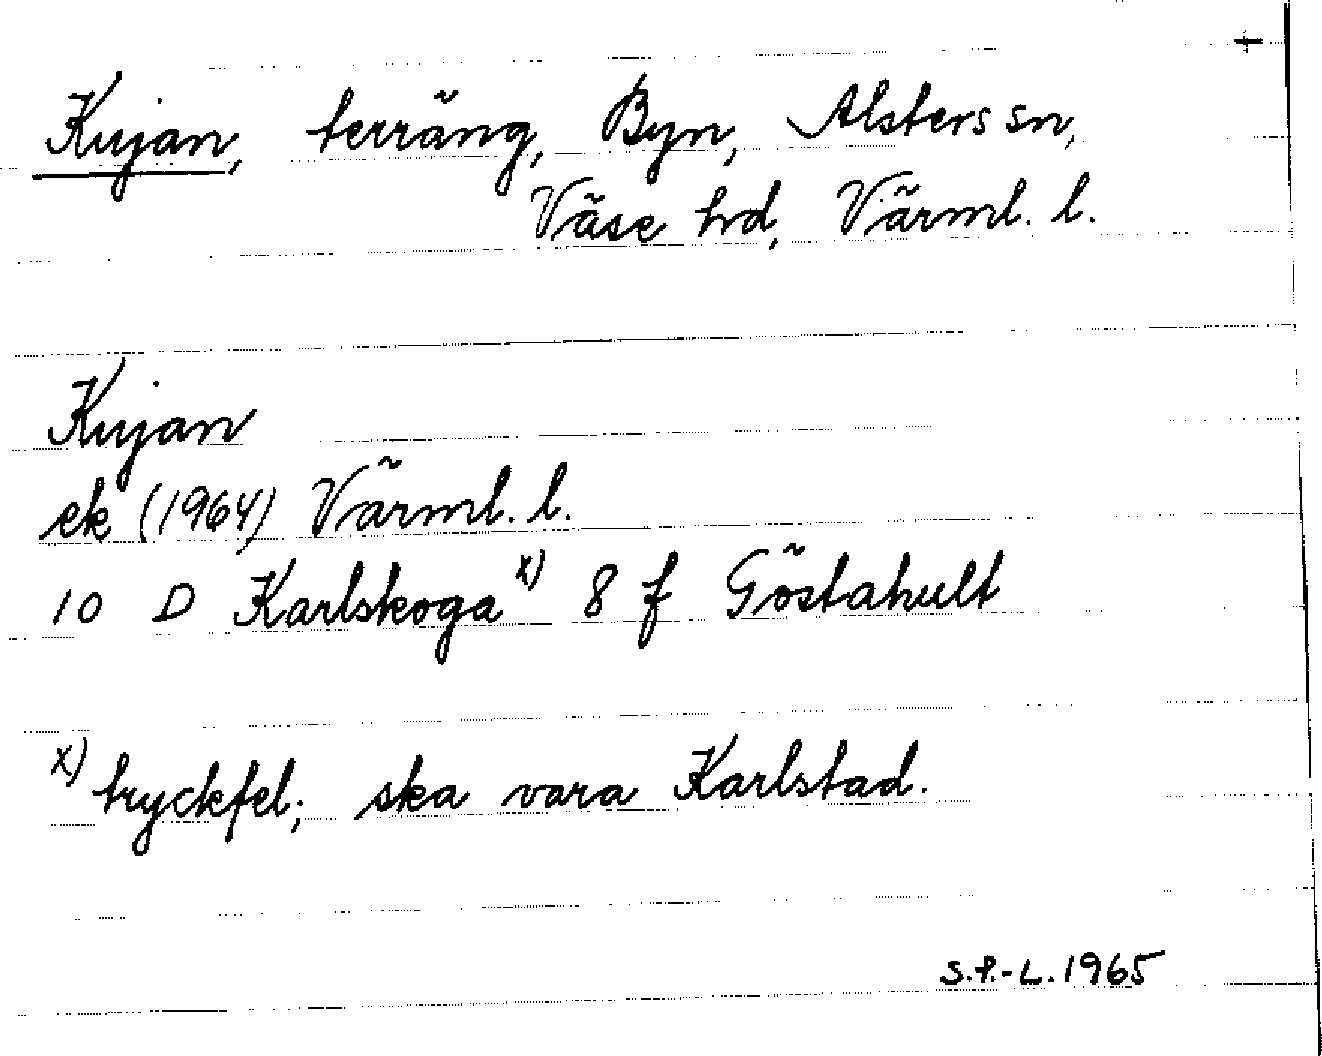 +
Kujan, terräng, Byn, Alsters sn,
Väse hd, Värml. l.
Kujan
ek (1964) Värml. l.
10 D Karlskoga x) 8 f Göstahult
x) tryckfel; ska vara Karlstad.
S.P.-L. 1965